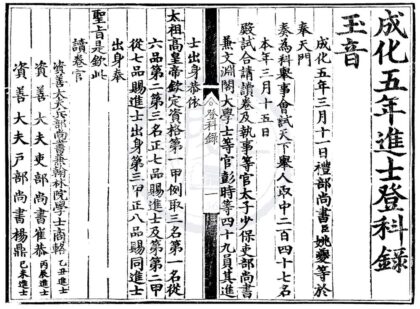 成化五年進士登科錄
玉音
成化五年三月十一日禮部尚書臣姚夔等於
奉天門
奏為科舉事會試天下舉人取中二百四十七名
本年三月十五日
殿試合請讀卷及執事等官太子少保吏部尚書
兼文淵閣大學士等官彭時等四十九員其進
士出身等第恭依
登科錄
太祖高皇帝欽定資格第一甲例取三名第一名從
六品第二第三名正七品賜進士及第第二甲
從七品賜進士出身第三甲正八品賜同進士
出身奉
聖旨是欽此
讀卷官
資善大夫兵部尚書兼翰林院學士商輅 乙丑進士
資善大夫吏部尚書崔恭 丙辰進士
資善大夫戶部尚書楊鼎 己未進士